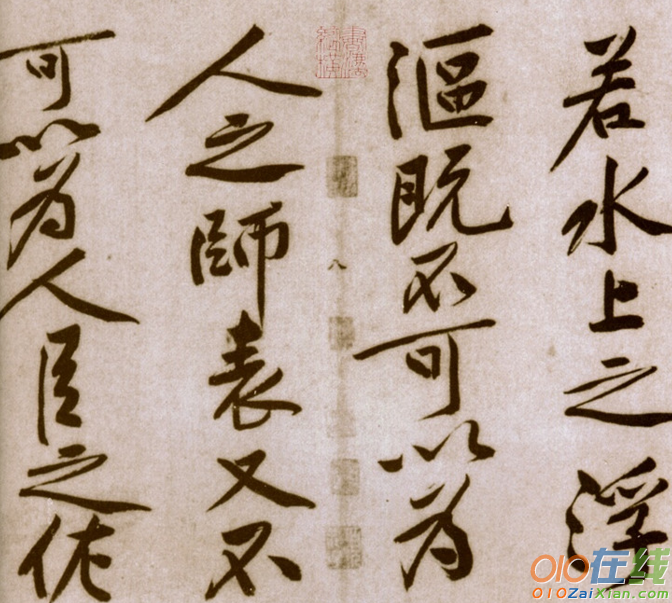 若水上之浮
漚既不可以為
八
人之師表又不
可以為人臣之作
010在线
010ZaiXian.com